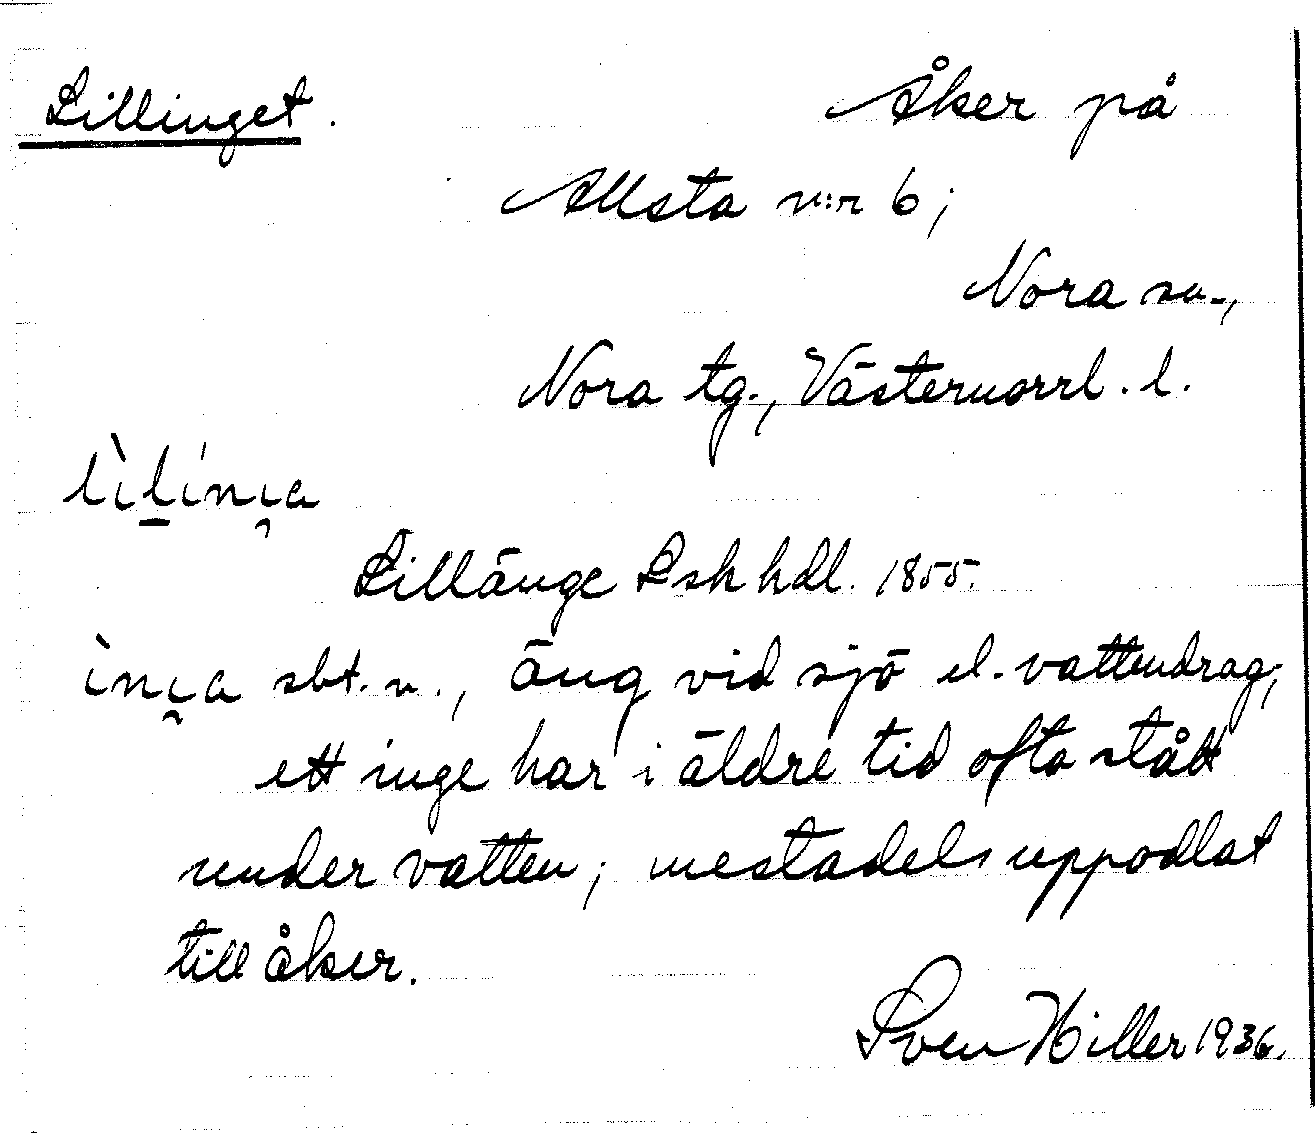 Lillinget. Åker på
Allsta n:r 6;
Nora sn.,
Nora tg., Västernorrl. l.
Lillänge Lskhdl. 1855.
sbt. n., äng vid sjö el. vattendrag,
ett inge har i äldre tid ofta stått
under vatten; mestadels uppodlat
till åker.
Sven Hiller 1936.